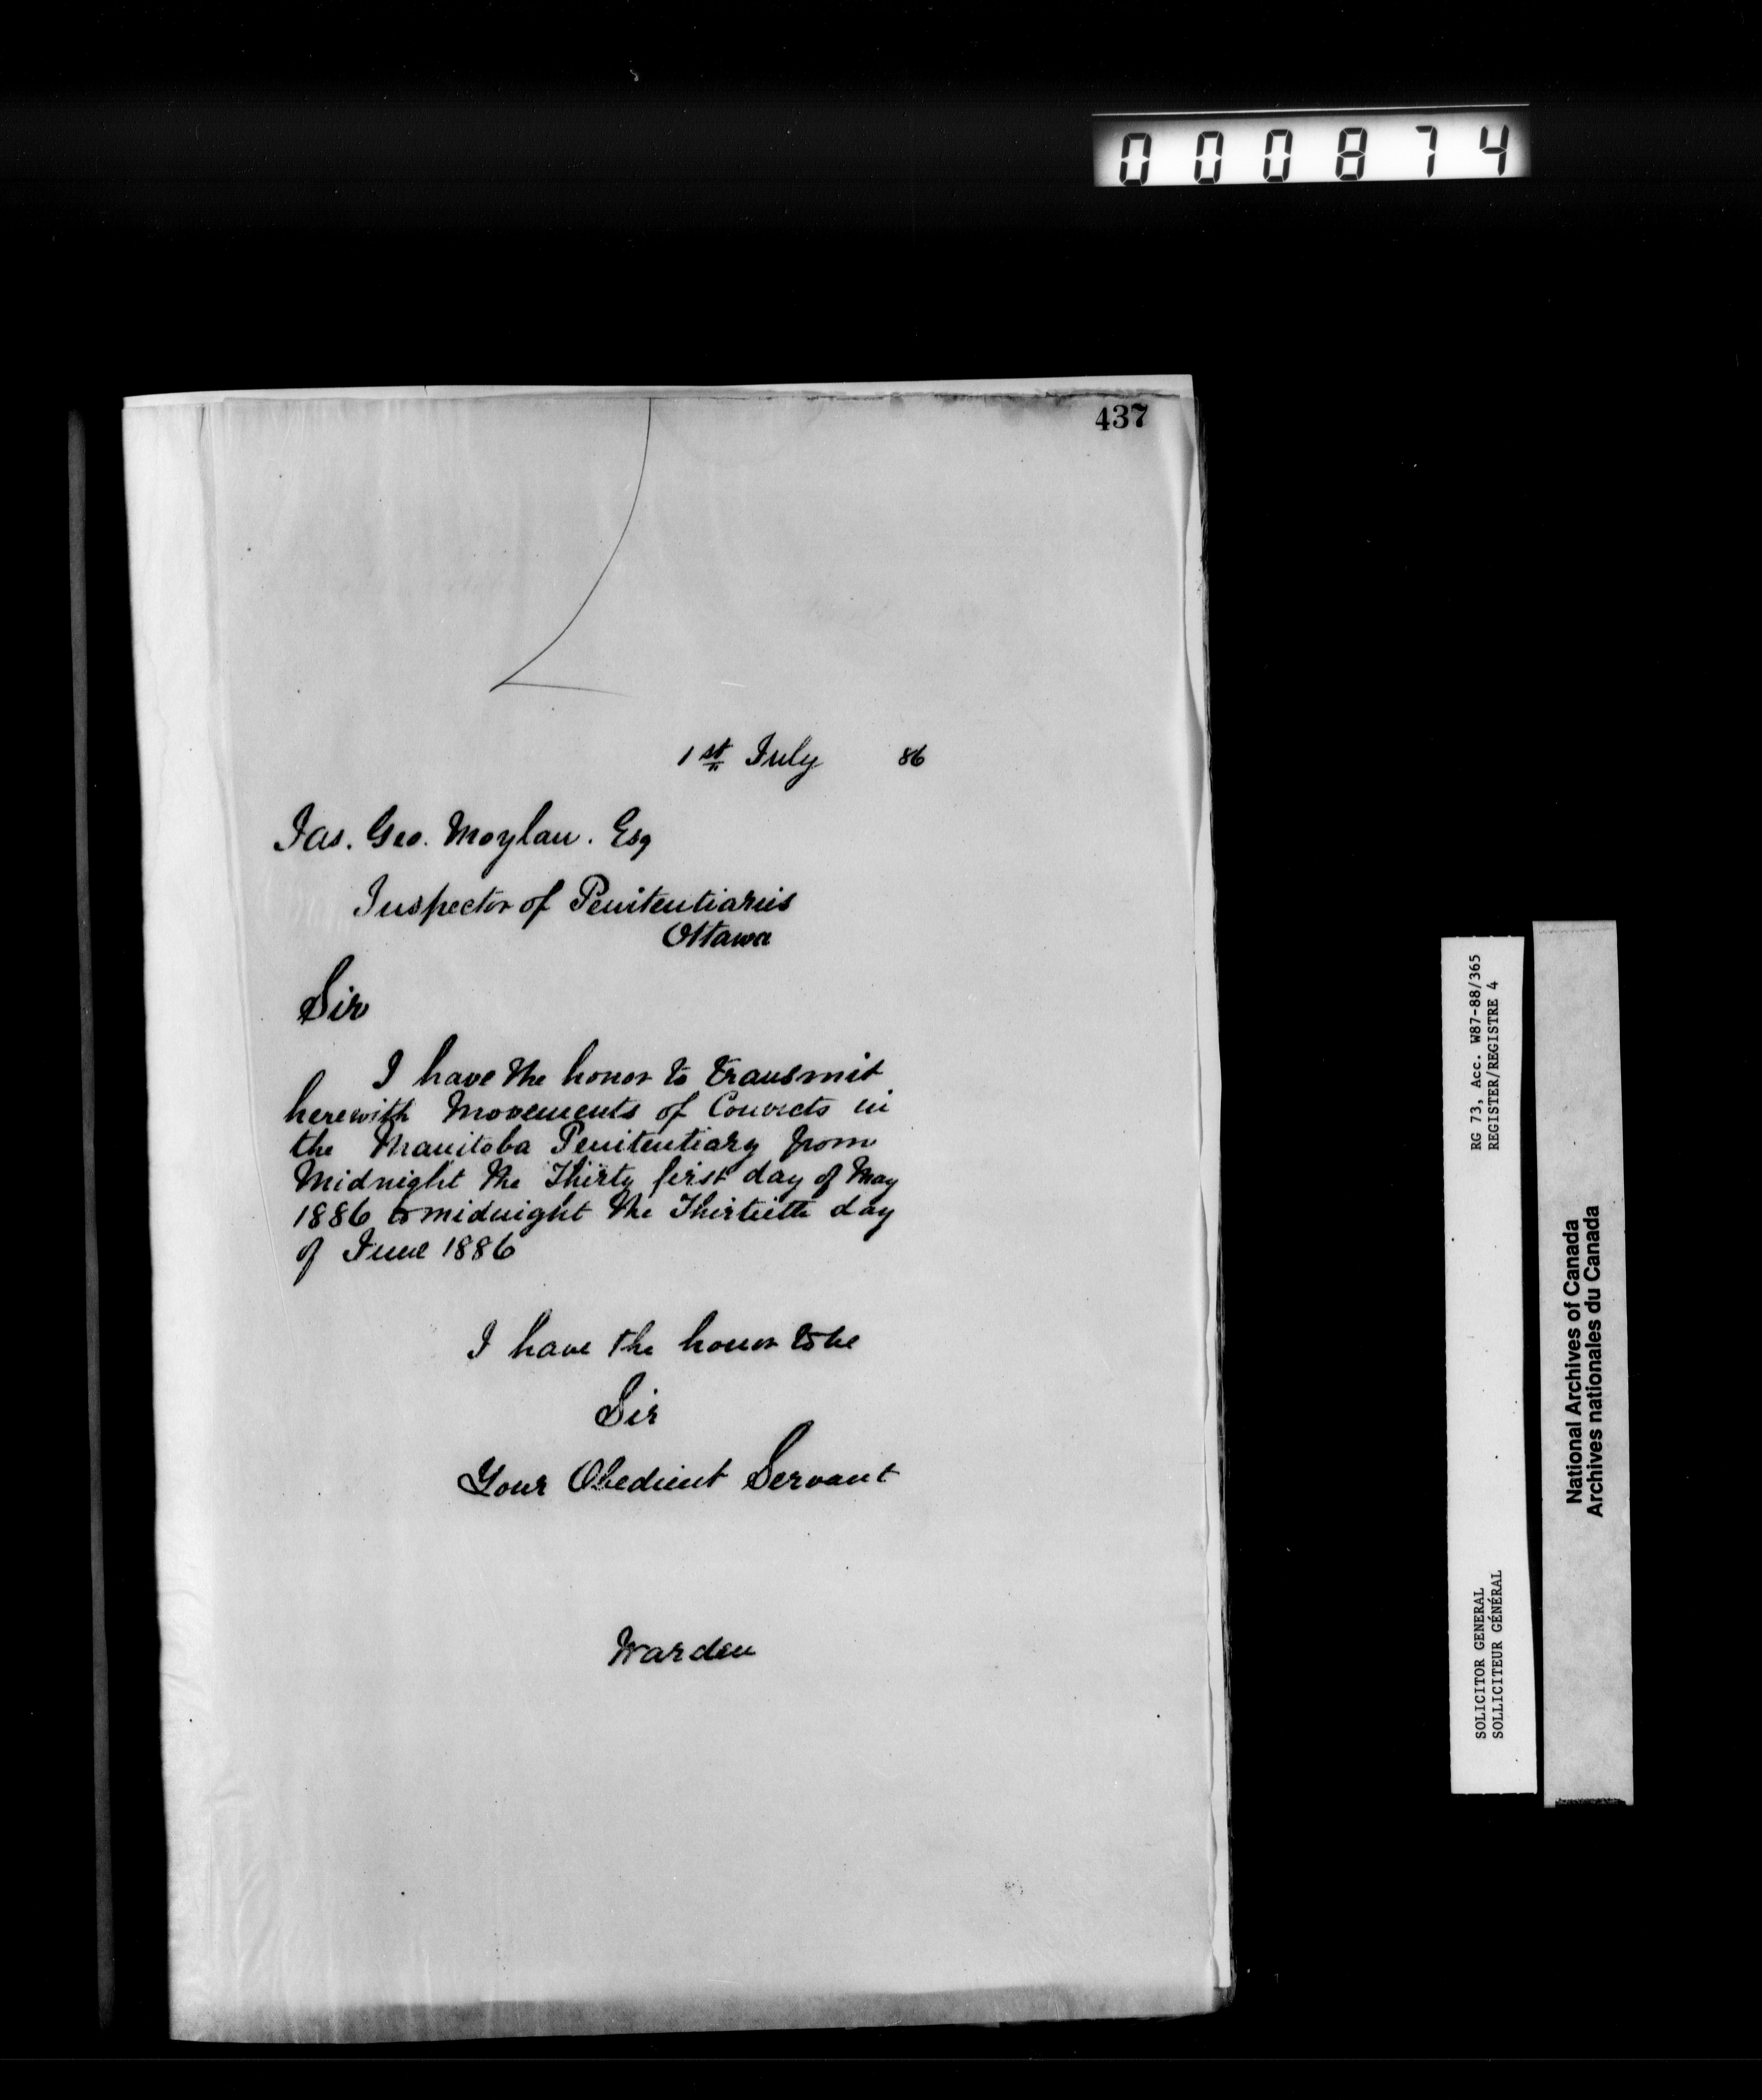 000874
437
1st July 86
Jas. Geo. Moylan. Esq
Inspector of Penitentiaries
Ottawa
Sir
I have the honor to transmit
herewith Movements of Convicts in
the Manitoba Penitentiary from
Midnight the Thirty first day of May
1886 to midnight the Thirtieth day
of June 1886
I have the honor to be
Sir
Your Obedient Servant
Warden
RG 73, Acc. W87-88/365
REGISTER/REGISTRE 4
SOLICITOR GENERAL
SOLLICITEUR GÉNÉRAL
National Archives of Canada
Archives nationales du Canada